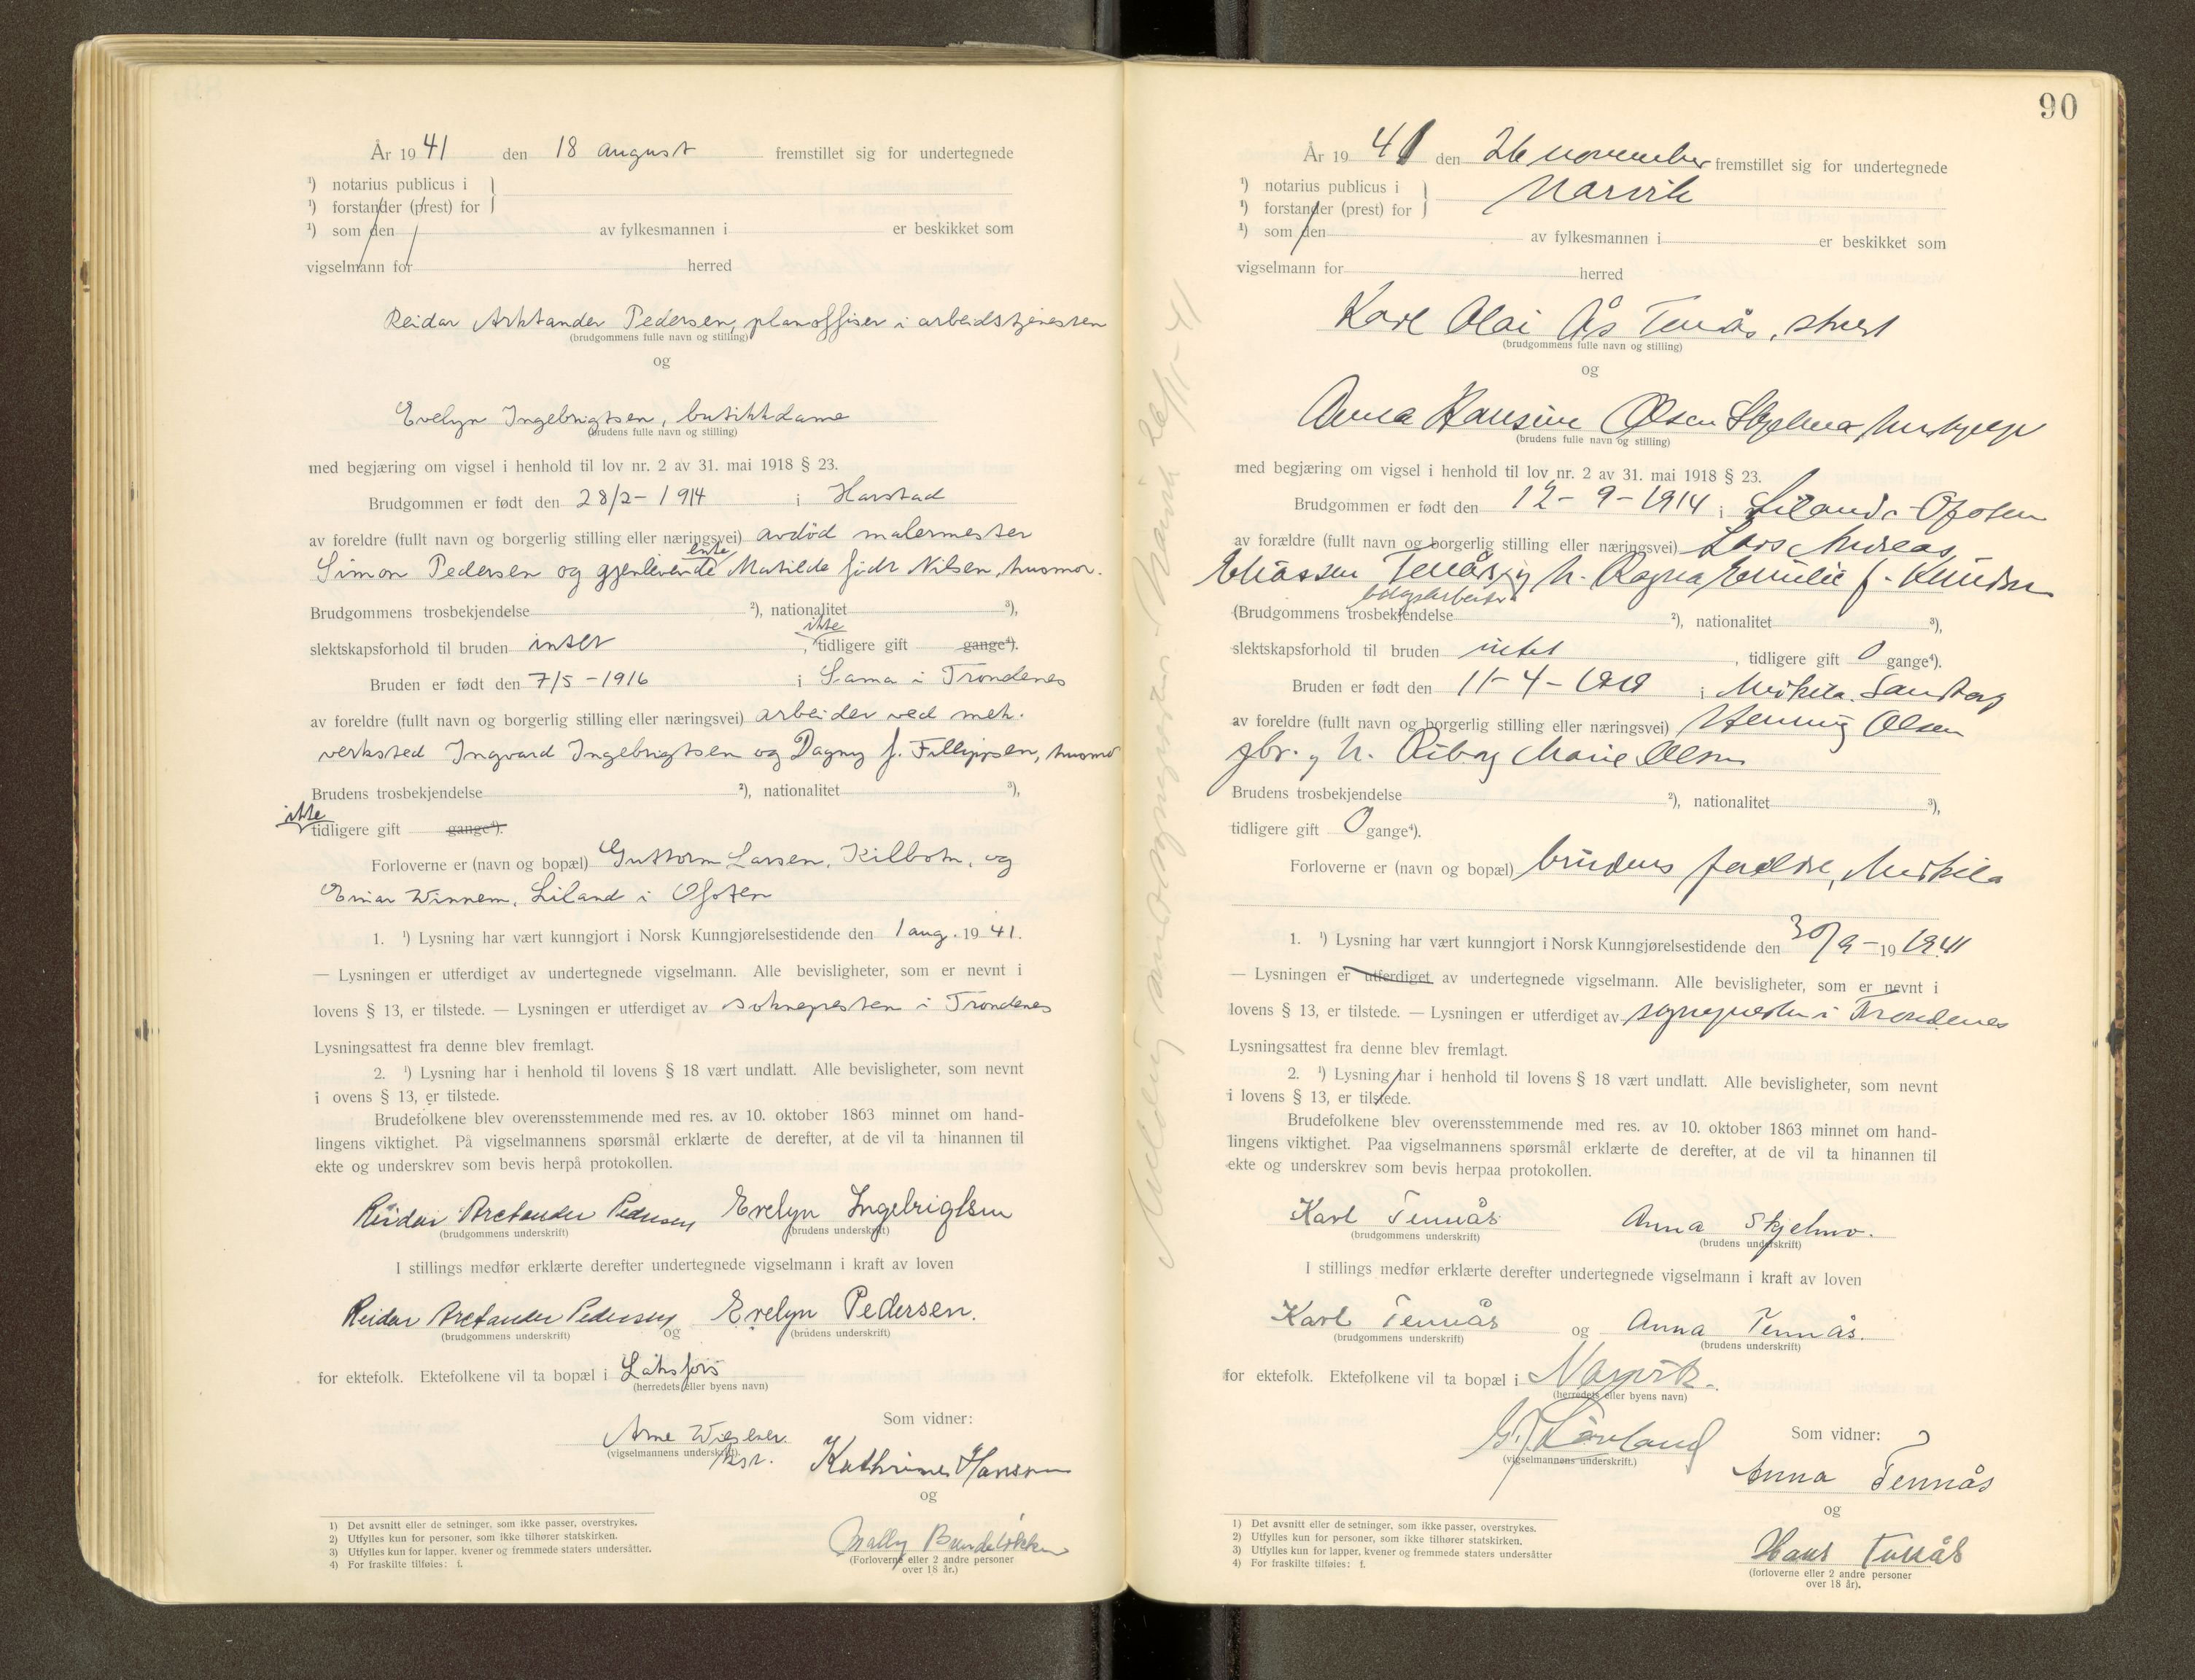 År 19 41 den 18 august fremstillet sig for undertegnede
¹) notarius publicus i
¹) forstander (prest) for
¹) som den av fylkesmannen i er beskikket som
vigselmann for herred
Reidar Arktander Pedersen, planoffiser i arbeidstjenesten
(brudgommens fulle navn og stilling)
og
Evelyn Ingebrigtsen, butikkdame
(brudens fulle navn og stilling)
med begjæring om vigsel i henhold til lov nr. 2 av 31. mai 1918 § 23.
Brudgommen er født den 28/2-1914 i Harstad
av foreldre (fullt navn og borgerlig stilling eller næringsvei) avdöd malermester
enke
Simon Pedersen og gjenlevende Matilde födt Nilsen, husmor.
Brudgommens trosbekjendelse ²), nationalitet ³),
ikke
slektskapsforhold til bruden intet , tidligere gift gange⁴).
Bruden er født den 7/5-1916 i Sama i Trondenes
av foreldre (fullt navn og borgerlig stilling eller næringsvei) arbeider ved mek.
verksted Ingvard Ingebrigtsen og Dagny f. Fillippsen, husmo
Brudens trosbekjendelse ²), nationalitet ³),
ikke
tidligere gift gange⁴).
Forloverne er (navn og bopæl) Guttorm Larsen, Kilbotn, og
Einar Winnem, Liland i Ofoten
1. ¹) Lysning har vært kunngjort i Norsk Kunngjørelsestidende den 1 aug. 19 41.
— Lysningen er utferdiget av undertegnede vigselmann. Alle bevisligheter, som er nevnt i
lovens § 13, er tilstede. — Lysningen er utferdiget av soknepresten i Trondenes
Lysningsattest fra denne blev fremlagt.
2. ¹) Lysning har i henhold til lovens § 18 vært undlatt. Alle bevisligheter, som nevnt
i ovens § 13, er tilstede.
Brudefolkene blev overensstemmende med res. av 10. oktober 1863 minnet om hand-
lingens viktighet. På vigselmannens spørsmål erklærte de derefter, at de vil ta hinannen til
ekte og underskrev som bevis herpå protokollen.
Reidar Arctander Pedersen Evelyn Ingebrigtsen
(brudgommens underskrift) (brudens underskrift)
I stillings medfør erklærte derefter undertegnede vigselmann i kraft av loven
Reidar Arctander Pedersen og Evelyn Pedersen.
(brudgommens underskrift) (brudens underskrift)
for ektefolk. Ektefolkene vil ta bopæl i Laksfors
(herredets eller byens navn)
Som vidner:
Arne
(vigselmannens underskrift).
Kathrine Hansen
og
(Forloverne eller 2 andre personer
over 18 år.)
1) Det avsnitt eller de setninger, som ikke passer, overstrykes.
2) Utfylles kun for personer, som ikke tilhører statskirken.
3) Utfylles kun for lapper, kvener og fremmede staters undersåtter.
4) For fraskilte tilføies: f.
90
År 19 41 den 26 november fremstillet sig for undertegnede
¹) notarius publicus i
¹) forstander (prest) for
Narvik
¹) som den av fylkesmannen i er beskikket som
vigselmann for herred
Karl Olai Ås Tenås,
(brudgommens fulle navn og stilling)
og
Anna Hansine Olsen Skjelmo,
(brudens fulle navn og stilling)
med begjæring om vigsel i henhold til lov nr. 2 av 31. mai 1918 § 23.
Brudgommen er født den 12-9-1914 i Liland i Ofoten
av forældre (fullt navn og borgerlig stilling eller næringsvei) Lars Andreas
Eliassen Tenås og h. Ragna Emilie f. Knudsen
(Brudgommens trosbekjendelse ²), nationalitet ³),
slektskapsforhold til bruden intet , tidligere gift 0 gange⁴).
Bruden er født den 11-4-1919 i Melkila. Sandtorg
av foreldre (fullt navn og borgerlig stilling eller næringsvei) Henning Olsen
gbr. og h. Marie Olsen
Brudens trosbekjendelse ²), nationalitet ³),
tidligere gift 0 gange⁴).
Forloverne er (navn og bopæl) brudens foreldre, Melkila
1. ¹) Lysning har vært kunngjort i Norsk Kunngjørelsestidende den 30/9-19 1941
— Lysningen er utferdiget av undertegnede vigselmann. Alle bevisligheter, som er nevnt i
lovens § 13, er tilstede. — Lysningen er utferdiget av sognepresten i Trondenes
Lysningsattest fra denne blev fremlagt.
2. ¹) Lysning har i henhold til lovens § 18 vært undlatt. Alle bevisligheter, som nevnt
i lovens § 13, er tilstede.
Brudefolkene blev overensstemmende med res. av 10. oktober 1863 minnet om hand-
lingens viktighet. Paa vigselmannens spørsmål erklærte de derefter, at de vil ta hinannen til
ekte og underskrev som bevis herpaa protokollen.
Karl Tennås Anna Skjelmo.
(brudgommens underskrift) (brudens underskrift)
I stillings medfør erklærte derefter undertegnede vigselmann i kraft av loven
Karl Tennås og Anna Tennås.
(brudgommens underskrift) (brudens underskrift)
for ektefolk. Ektefolkene vil ta bopæl i Narvik.
(herredets eller byens navn)
Som vidner:
(vigselmannens underskrift.)
Anna Tennås
og
Hans Tenås
(forloverne eller 2 andre personer
over 18 år).
1) Det avsnitt eller de setninger, som ikke passer, overstrykes.
2) Utfylles kun for personer, som ikke tilhører statskirken.
3) Utfylles kun for lapper, kvener og fremmede staters undersåtter
4) For fraskilte tilføies: f.
Melding sendt sognepresten i Narvik 26/11-41